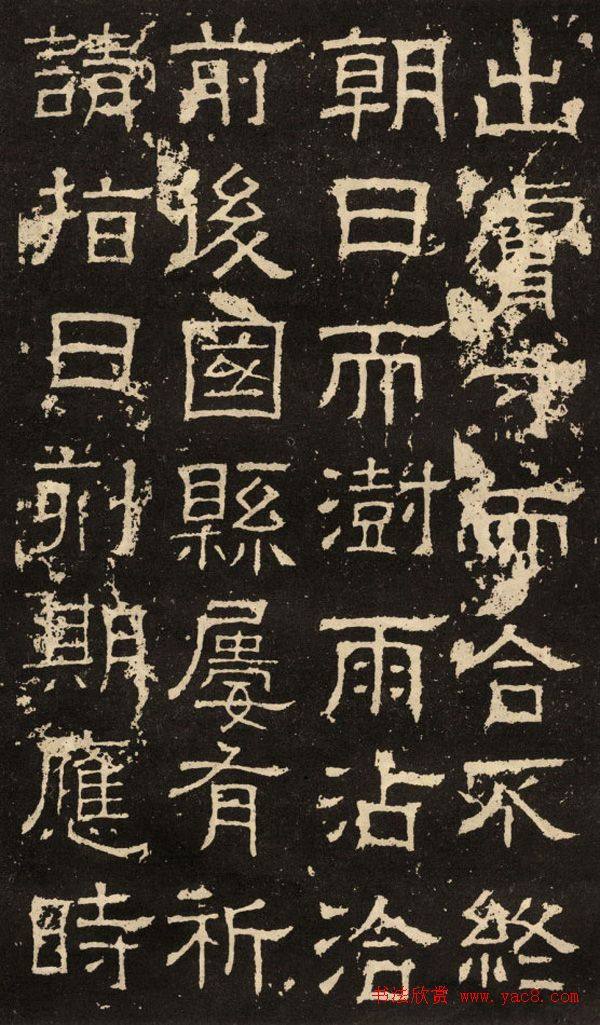 出膚寸而合不終
朝日而澍雨沾洽
前後國縣屢有祈
請指日刻期應時
书法欣赏 www.yac8.com